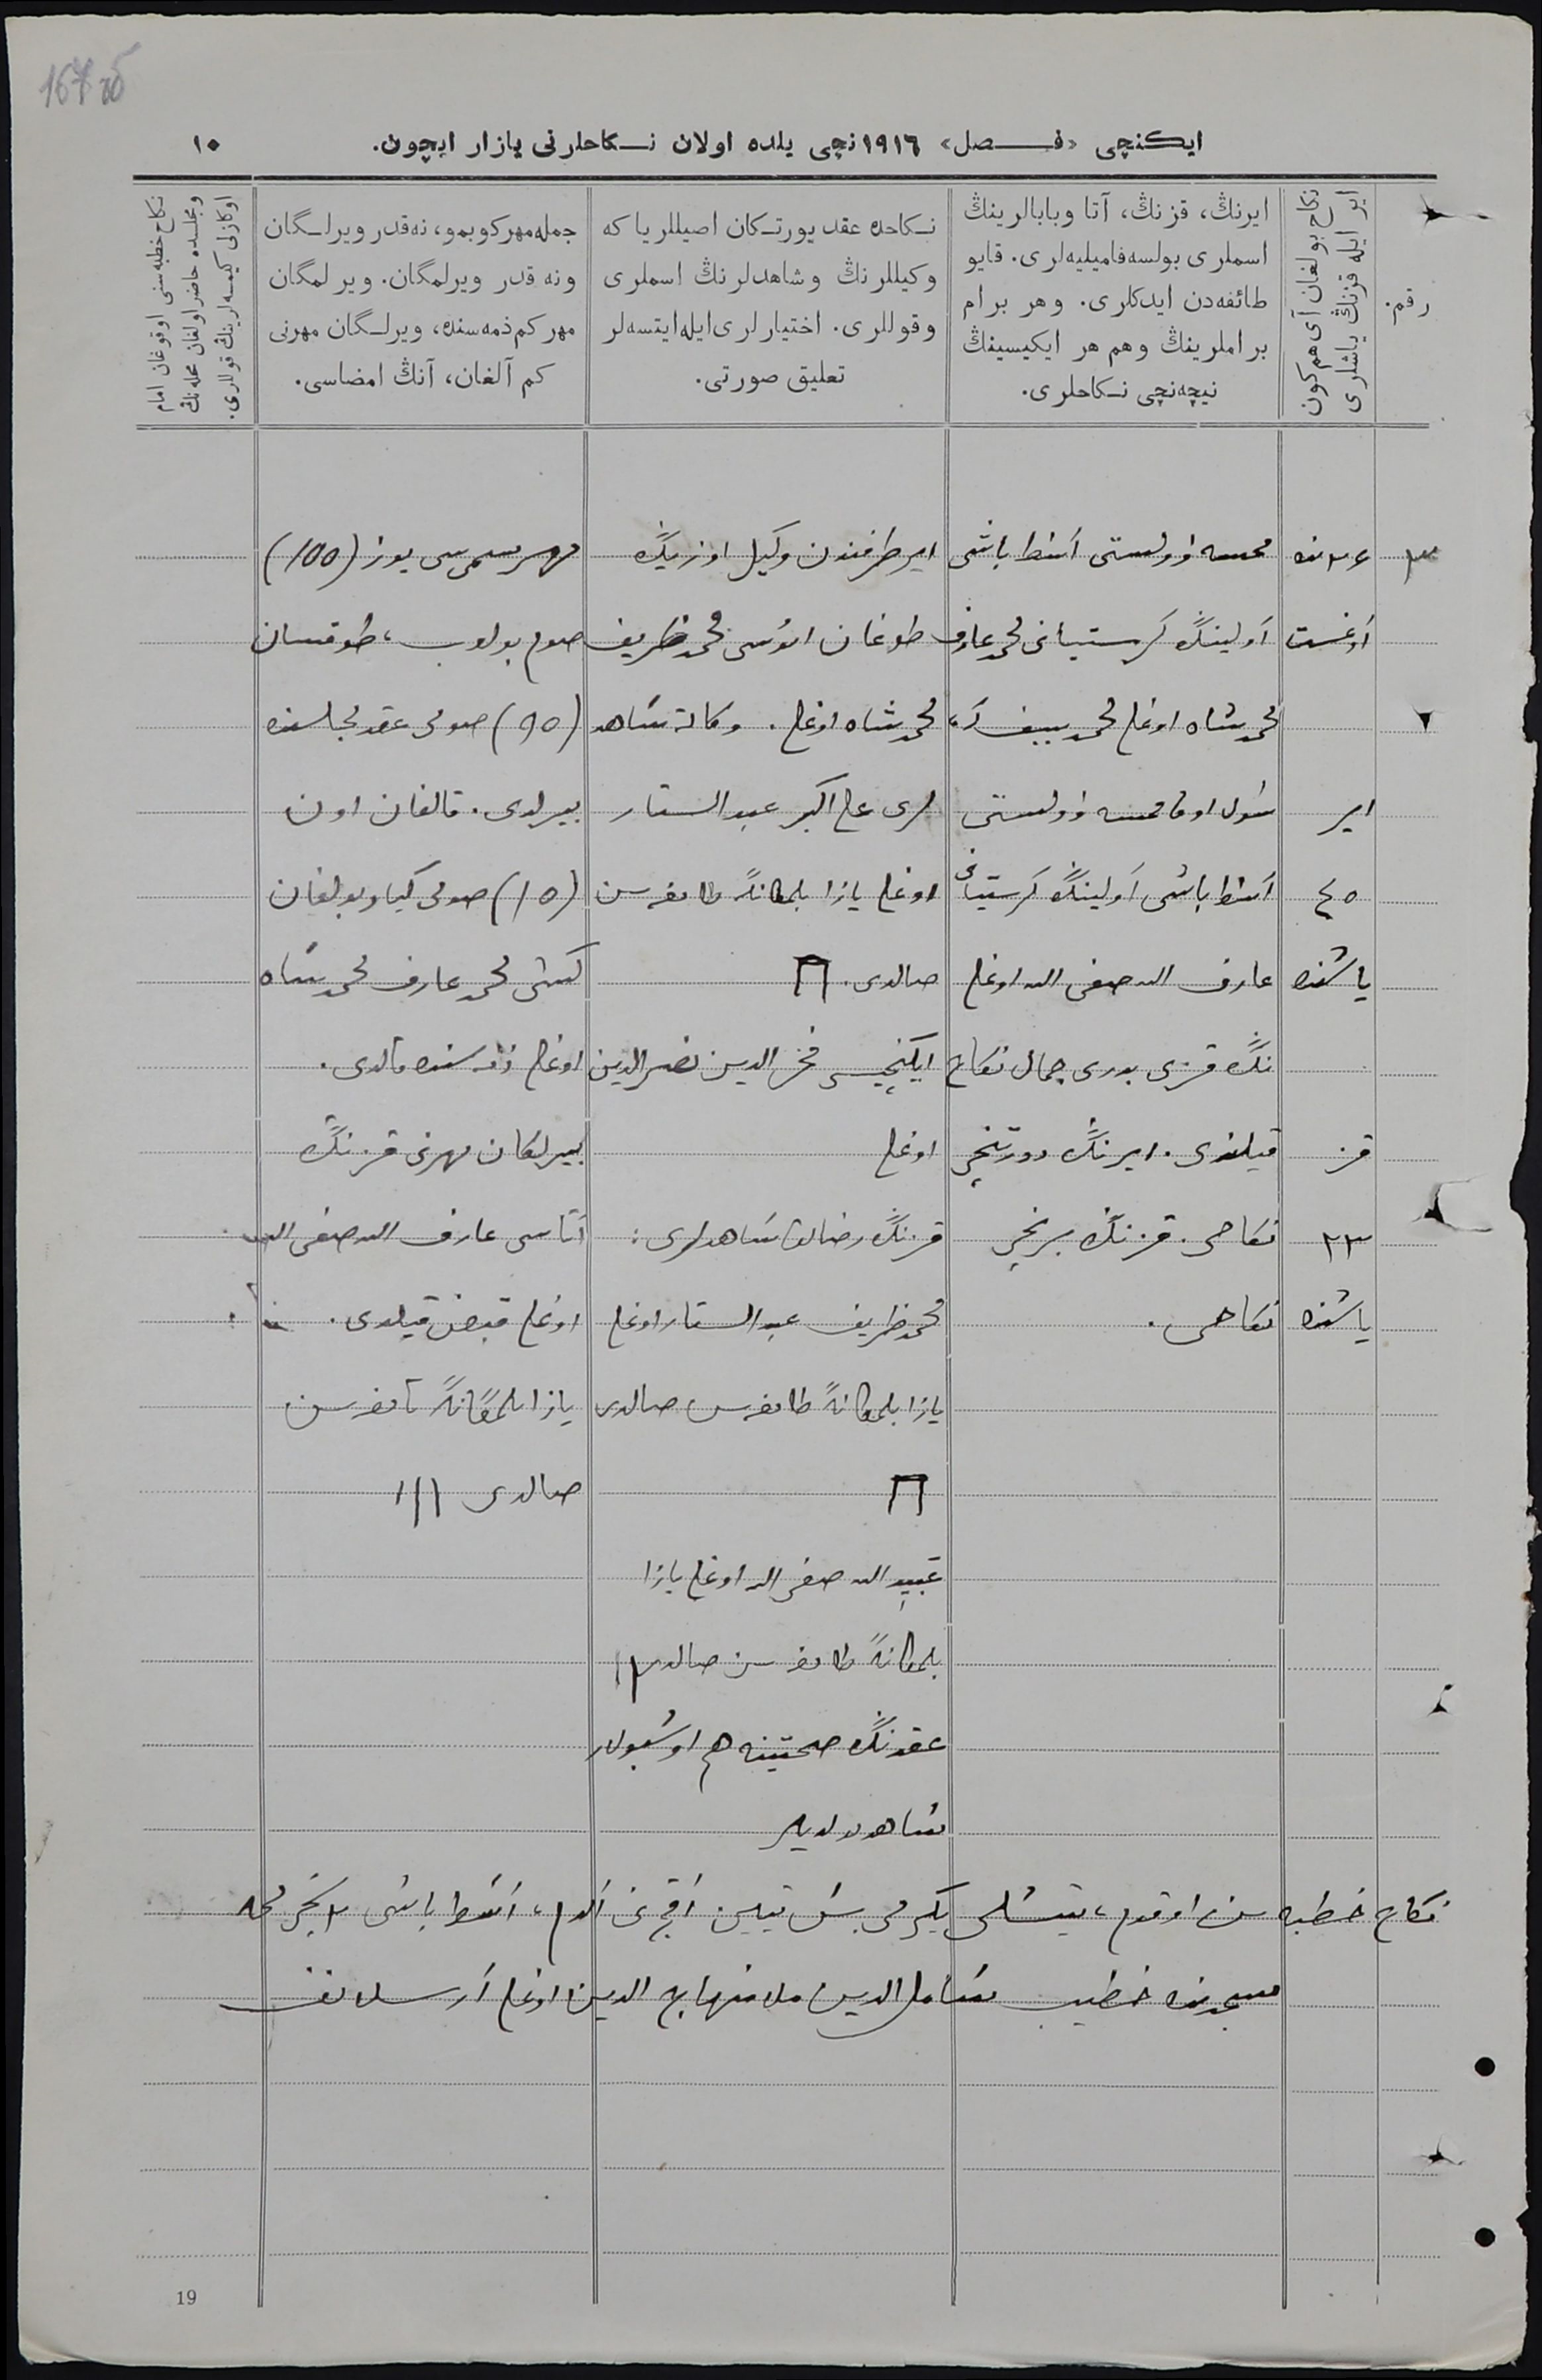 167 об
ایكنچی «فصل» ١٩١٦ نچی یلده اولان نكاحلرنی یازار ایچون.
١٠
رقم.
نكاح بولغان آی هم كون
ایر ایله قزنڭ یاشلری
ایرنڭ، قزنڭ، آتا وبابالرینڭ
اسملری بولسه فامیلیه‌لری. قایو
طائفه‌دن ایدكلری. وهر برام
براملرینڭ وهم هر ایكیسینڭ
نیچه‌نچی نكاحلری.
نكاحده عقد یورتكان اصیللر یا كه
وكیللرنڭ وشاهدلرنڭ اسملری
وقوللری. اختیارلری ایله ایتسه‌لر
تعلیق صورتی.
جمله مهر كوبمو، نه‌قدر ویرلگان
ونه قدر ویرلمگان. ویرلمگان
مهر كم ذمه‌سنده، ویرلگان مهرنی
كم آلغان، آنڭ امضاسی.
نكاح خطبه سنی اوقوغان امام
ومجلسده حاضر اولغان محله‌نڭ
اوكازلی كیمسه‌لرینڭ قوللری.
٣
٢٤ نده
آوغست
ایر
٤٥
یاشنده
قز
٢٣
یاشنده
وولستی آسط باشی
آولینڭ كرستیانی محمد عارف
محمد شاه اوغلی محمد
شول اوق وولستی
آسط باشی آولینڭ كرستیانی
عارف الله صفی الله اوغلی
نڭ قزی بدری جمال نكاح
قیلندی. ایرنڭ دورتنچی
نكاحی. قزنڭ برنچی
نكاحی.
ایر طرفندن وكیل اوزینڭ
طوغان محمد ظریف
محمد شاه اوغلی. وكالة شاهد
لری علی اكبر عبد الستار
اوغلی یازا بلمگانگه طامغه‌سن
صالدی.
ایكنچیسی فخر الدین نصر الدین
اوغلی
قزنڭ رضالق شاهدلری:
محمد ظریف عبد الستار اوغلی
یازا بلمگانگه طامغه‌سن صالدی
عبید الله صفی الله اوغلی یازا
بلمگانگه طامغه‌سن صالدی
عقدنڭ صحتینه هم اوشبولار
شاهدلردر
مهر سمی‌سی یوز (100)
صوم بولوب، طوقسان
(90) صومی عقد مجلسنده
بیرلدی. قالغان اون
(10) صومی كیاو بولغان
كشی محمد عارف محمد شاه
اوغلی ذمه‌سنده قالدی.
بیرلگان مهرنی قزنڭ
آتاسی عارف الله صفی الله
اوغلی قبض قیلدی.
یازا بلمگانگه تامغه‌سن
صالدی ااا
نكاح خطبه‌سن اوقودم، تیشلی یكرمی بش تیین آقچه‌نی آلدم، آسط باشی ٢ نچی محله
مسجدنده خطیب شامل الدین ملا منهاج الدین اوغلی آرسلانف
19